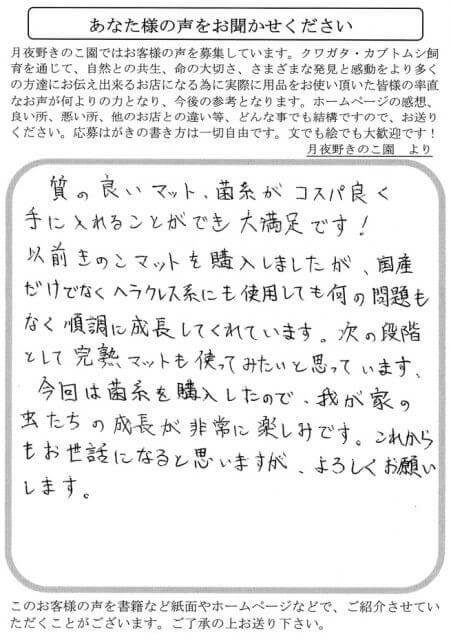 あなた様の声をお聞かせください
月夜野きのこ園ではお客様の声を募集しています。クワガタ・カブトムシ飼
育を通じて、自然との共生、命の大切さ、さまざまな発見と感動をより多く
の方達にお伝え出来るお店になる為に実際に用品をお使い頂いた皆様の率直
なお声が何よりの力となり、今後の参考となります。ホームページの感想、
良い所、悪い所、他のお店との違い等、どんな事でも結構ですので、お送り
ください。応募はがきの書き方は一切自由です。文でも絵でも大歓迎です！
月夜野きのこ園　より
質の良いマット、菌糸がコスパ良く
手に入れることができ大満足です！
以前きのこマットを購入しましたが、国産
だけでなくヘラクレス系にも使用しても何の問題も
なく順調に成長してくれています。次の段階
として完熟マットも使ってみたいと思っています、
今回は菌糸を購入したので、我が家の
虫たちの成長が非常に楽しみです。これから
もお世話になると思いますが、よろしくお願い
します。
このお客様の声を書籍など紙面やホームページなどで、ご紹介させてい
ただくことがございます。ご了承の上お送り下さい。